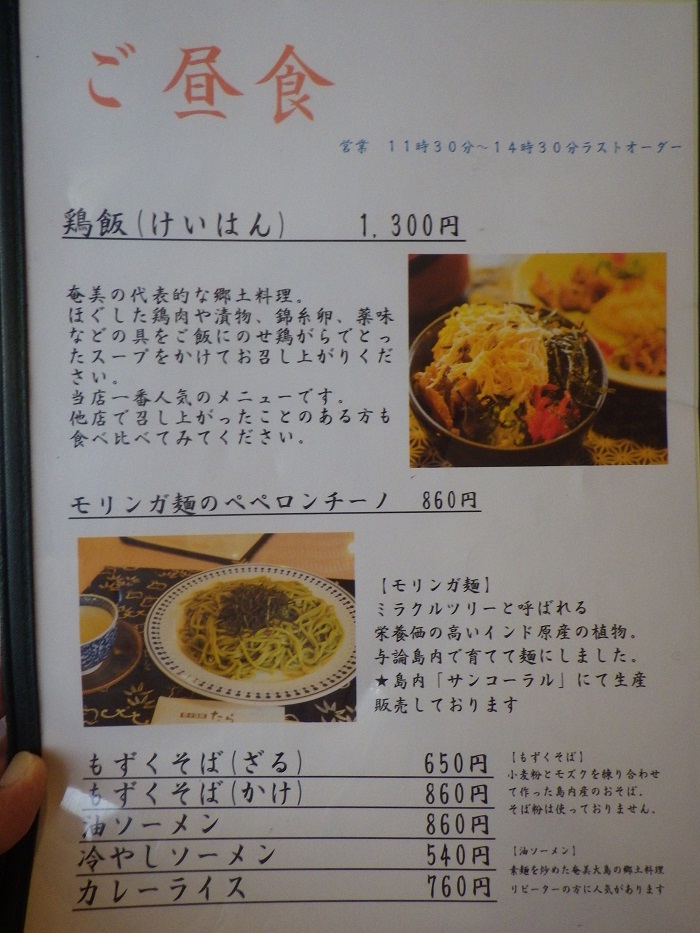 ご昼食
営業 11時30分～14時30分ラストオーダー
鶏飯(けいはん) 1,300円
奄美の代表的な郷土料理。
ほぐした鶏肉や漬物、錦糸卵、薬味
などの具をご飯にのせ鶏がらでとっ
たスープをかけてお召し上がりくだ
さい。
当店一番人気のメニューです。
他店で召し上がったことのある方も
食べ比べてみてください。
モリンガ麺のペペロンチーノ 860円
【モリンガ麺】
ミラクルツリーと呼ばれる
栄養価の高いインド原産の植物。
与論島内で育てて麺にしました。
★島内「サンコーラル」にて生産
販売しております
もずくそば(ざる) 650円
もずくそば(かけ) 860円
油ソーメン 860円
冷やしソーメン 540円
カレーライス 760円
【もずくそば】
小麦粉とモズクを練り合わせ
て作った島内産のおそば。
そば粉は使っておりません。
【油ソーメン】
素麺を炒めた奄美大島の郷土料理
リピーターの方に人気があります